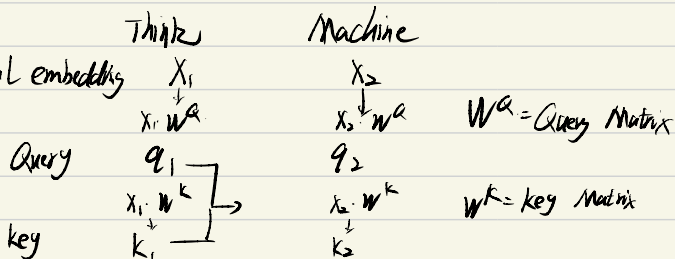 Think Machine
L embedding X₁ X₂
X₁·W^Q X₂·W^Q W^Q = Query Matrix
Query q₁ q₂
X₁·W^K X₂·W^K W^K = key Matrix
key K₁ K₂